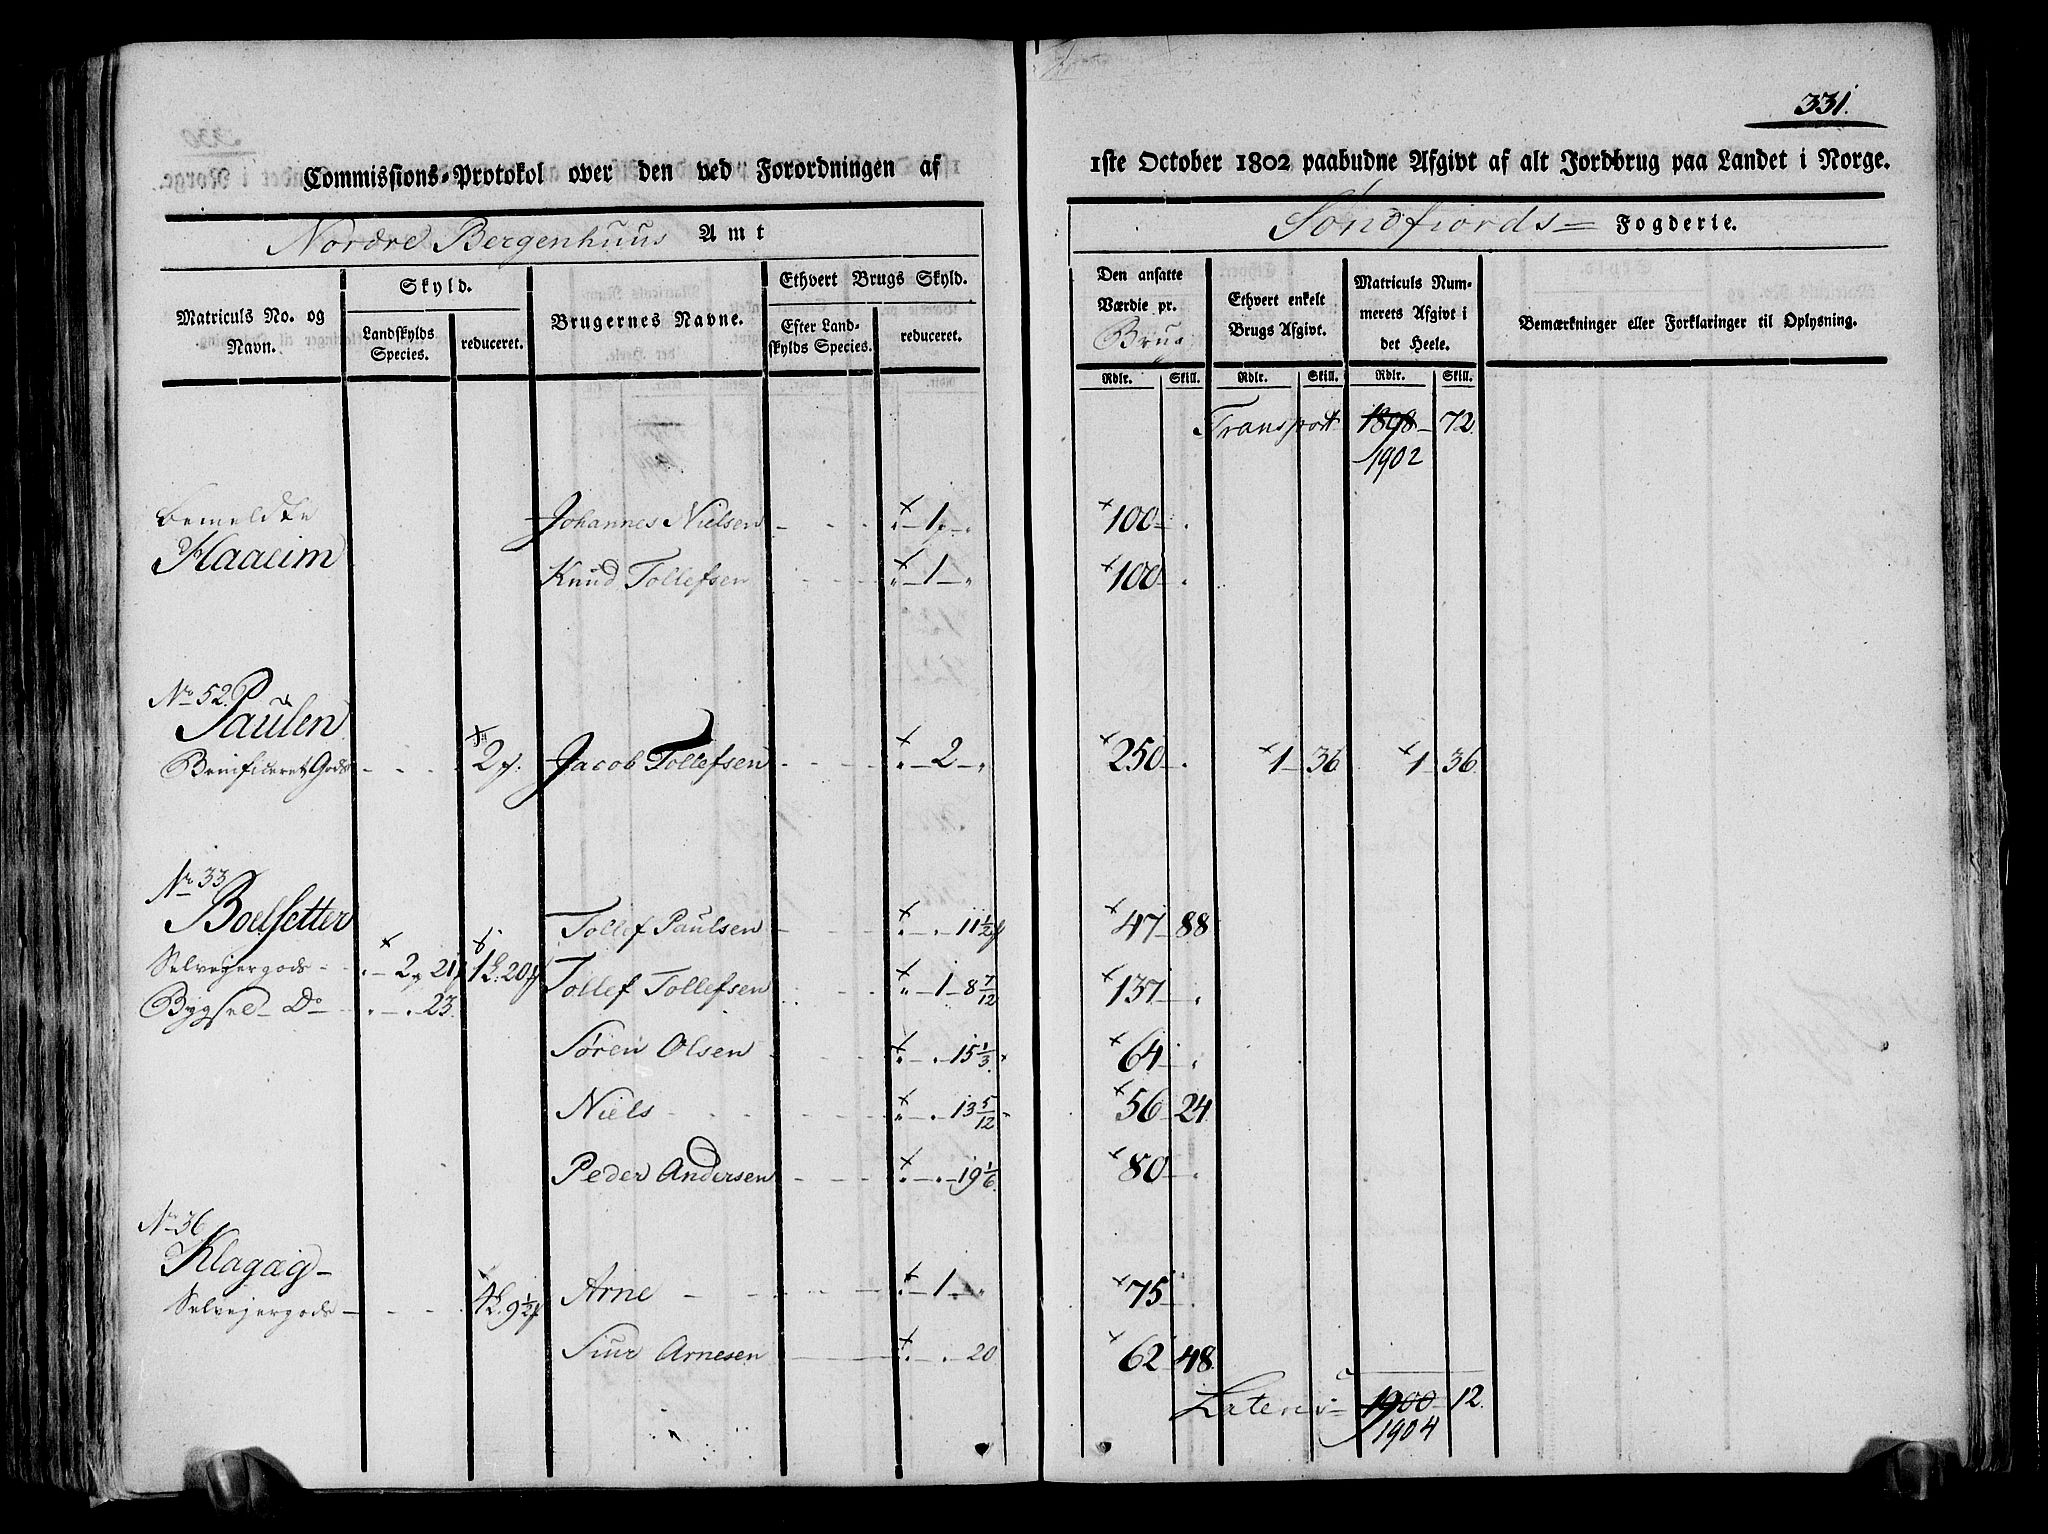 331.
Commissions-Protokol over den ved Forordningen af 1ste October 1802 paabudne Afgivt af alt Jordbrug paa Landet i Norge.
Nordre Bergenhuus Amt
Søndfiords Fogderie.
Matriculs No. og Navn.
Skyld.
Landskylds Species.
reduceret.
Brugernes Navne.
Ethvert Brugs Skyld.
Efter Landskylds Species.
reduceret.
Den ansatte Værdie pr. Brug
Ethvert enkelt Brugs Afgivt.
Matriculs Nummerets Afgivt i det Heele.
Bemærkninger eller Forklaringer til Oplysning.
Rdlr. Skill. Rdlr. Skill. Rdlr. Skill.
Transport 1898 - 72
1902
bemeldte Johannes Nielsen - - - 1 - 100 -
Haaeim
Knud Tollefsen - - - 1 - 100 -
No 52.
Paulen
Benificeret Gods - - - 2 Jacob Tollefsen - - - 2 - 250 - 1 - 36 1 - 36
No 33
Boelsetter Tollef Paulsen - - 11 1/2 47 - 88
Selvejergods - 2 21 1 20 Tollef Tollefsen - - 1 - 8 7/12 137 -
Bygsel Do - - 23.
Søren Olsen - - 15 1/3 64 -
Niels - - - 13 5/12 56 - 24
Peder Andersen - - - 19 1/6 80 -
No 36
Klagæg
Selvejergods - - - 4 9 1/2 Arne - - - 1 - 75 -
Siur Arnesen - 20 62 - 48
Lateris 1900 - 12.
1904